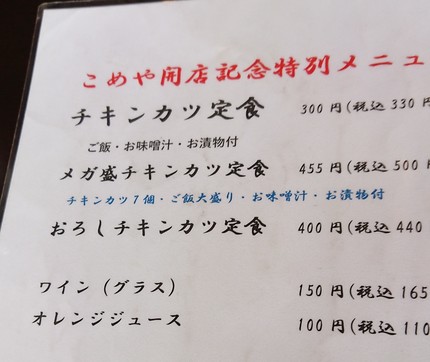 こめや開店記念特別メニュ
チキンカツ定食 300円(税込330円
ご飯・お味噌汁・お漬物付
メガ盛チキンカツ定食 455円(税込500円
チキンカツ7個・ご飯大盛り・お味噌汁・お漬物付
おろしチキンカツ定食 400円(税込440
ワイン(グラス) 150円(税込165
オレンジジュース 100円(税込110